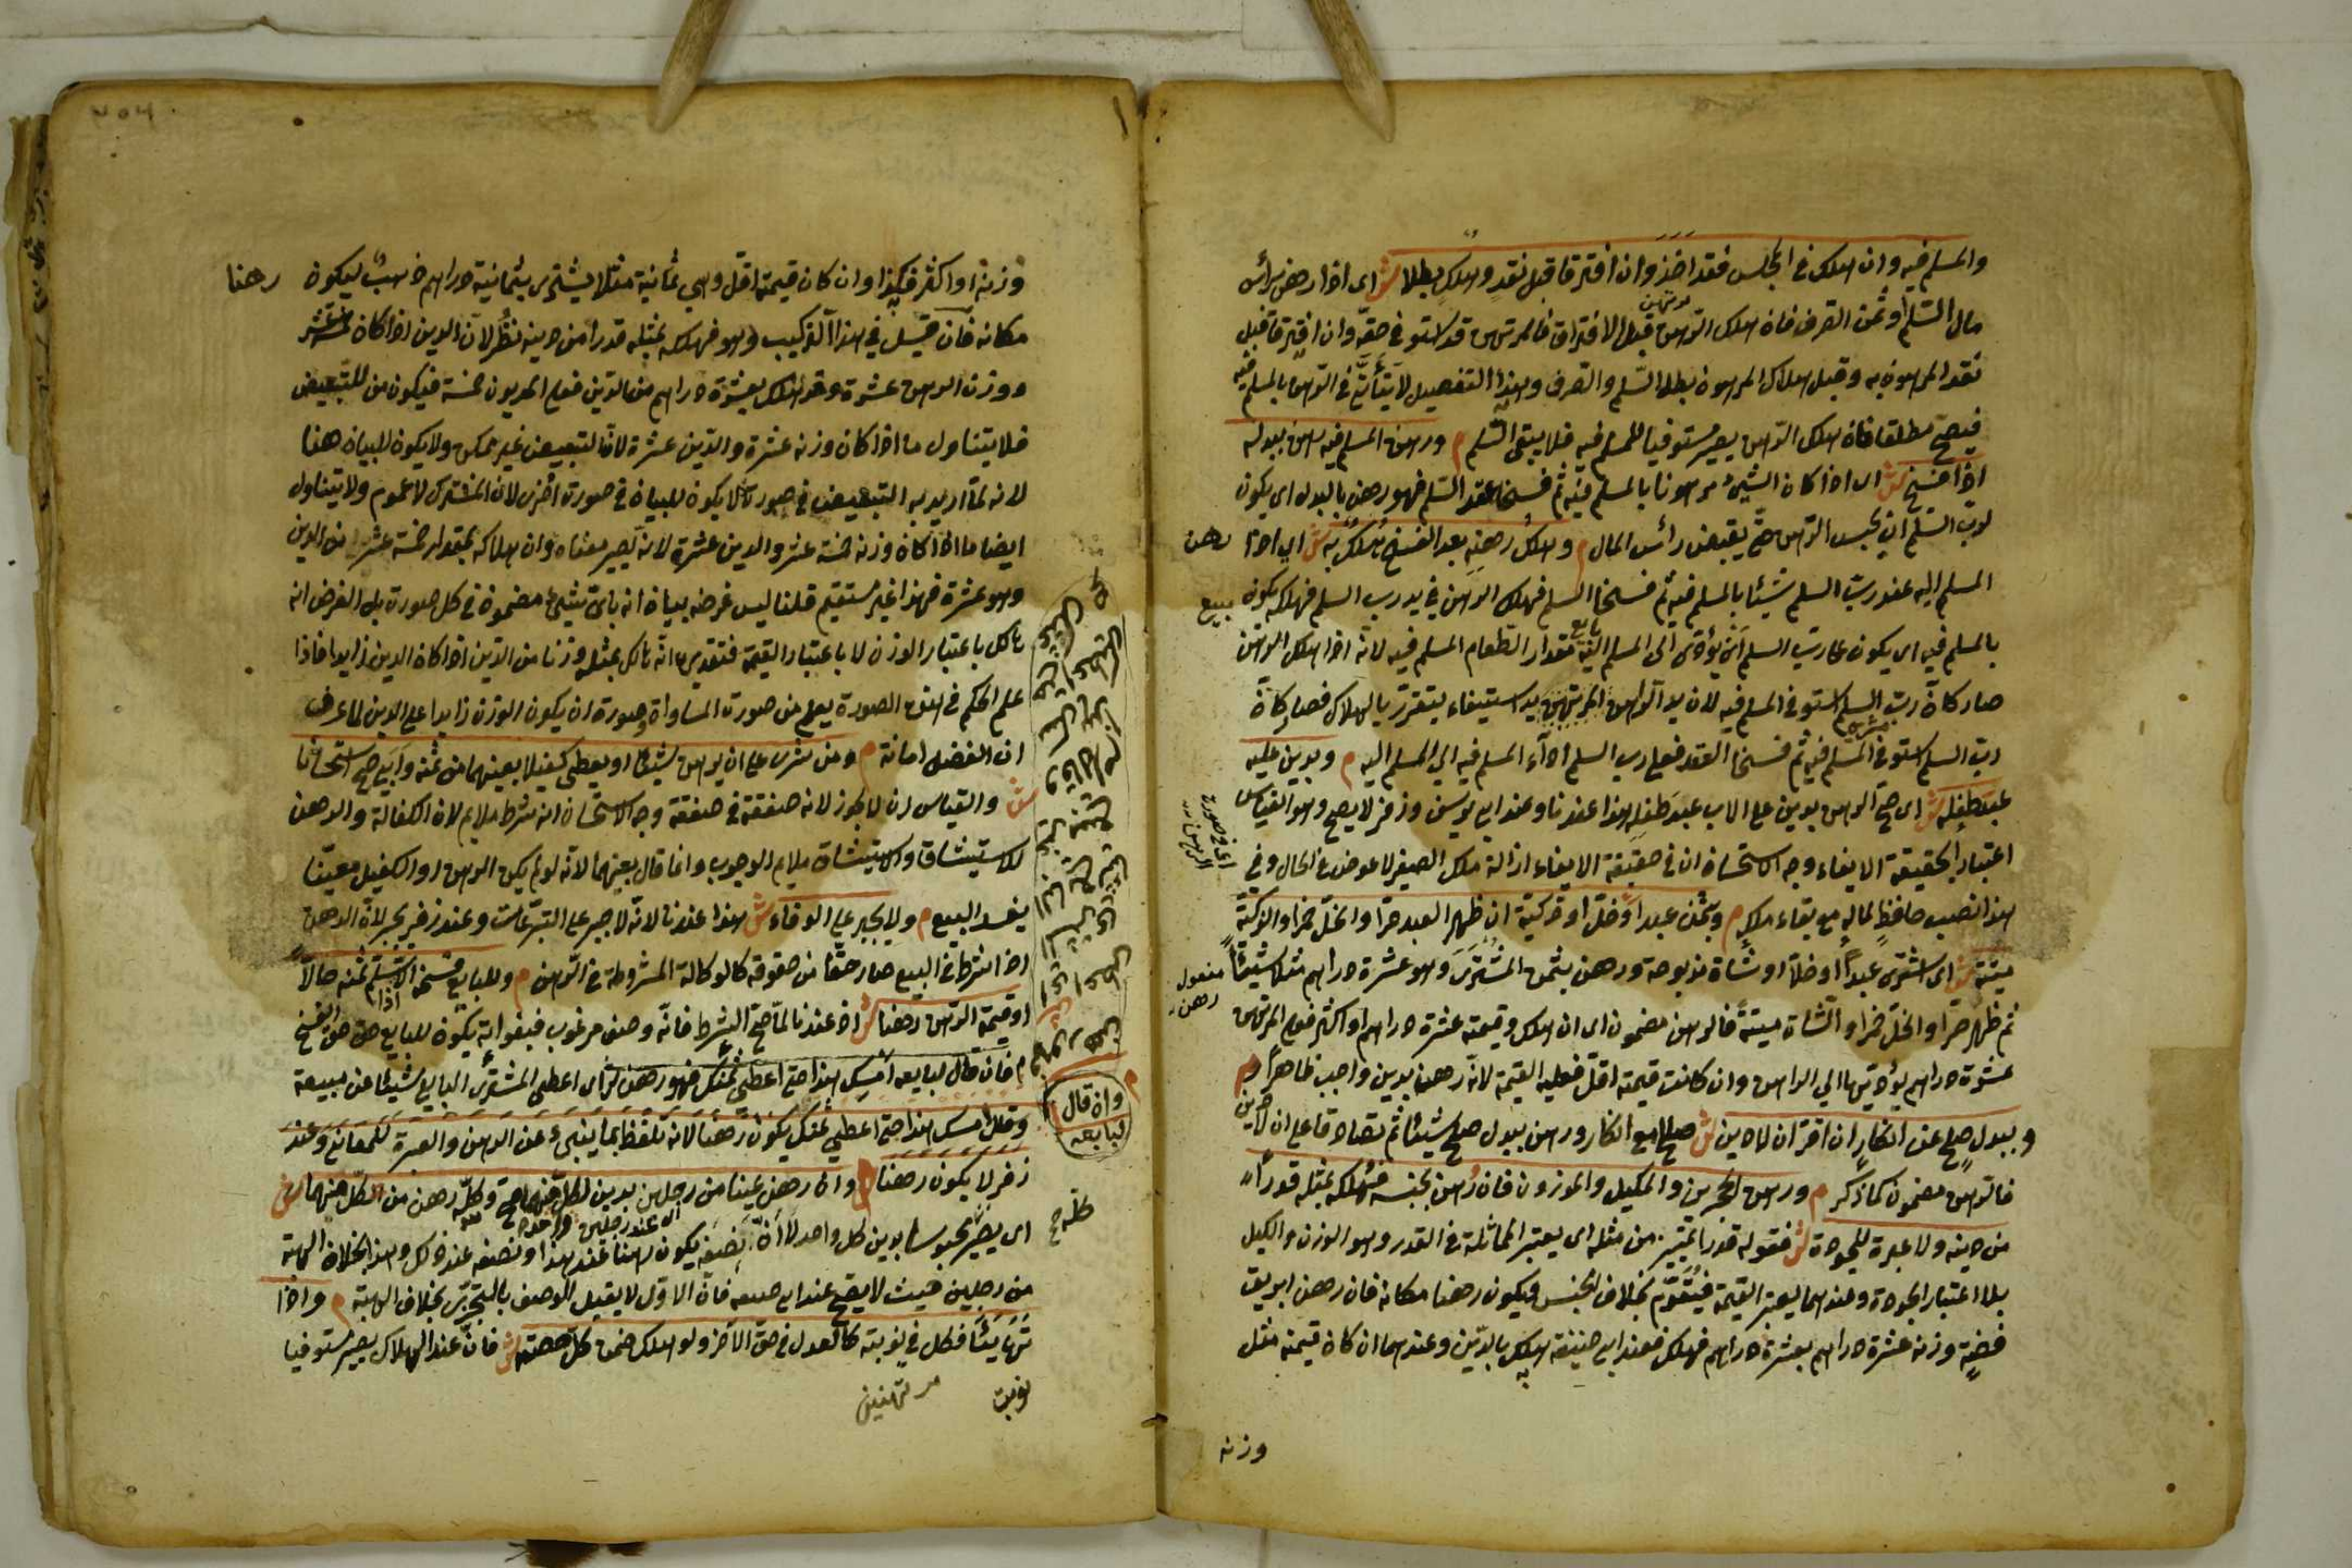 والمسلم فيه وان هلك في المجلس فقد اخذ وان افترقا قبل نقد وهلك بطلا ش اى اذا رهن برأس
مال السّلم او ثمن الصرف فان هلك الرّهن قبل الافتراق فالمرتهن قد استوفى حقّه وان افترقا قبل
نقد المرهون به وقبل هلاك المرهون بطل السّلم والصرف وهذا التفصيل لا يتأتّى في الرّهن بالمسلم فيه
فيصحّ مطلقا فان هلك الرّهن يصير مستوفيا للمسلم فيه فلا يبقى السّلم م ورهن المسلم فيه رهن ببدله
اذا فسخ ش اى اذا كان الشيئ مرهونا بالمسلم فيه ثم فسخا عقد السّلم فهو رهن بالبدل اى يكون
لربّ السّلم ان يحبس الرّهن حتّى يقبض رأس المال م وهلك رهنه بعد الفسخ هلك به ش اى اذا رهن
المسلم اليه عند ربّ السلم شيئا بالمسلم فيه ثم فسخا السلم فهلك الرهن في يد رب السلم فهلاكه يكون
بالمسلم فيه اى يكون على ربّ السلم ان يؤدّى الى المسلم اليه مقدار الطّعام المسلم فيه لانّه اذا هلك الرّهن
صار كأنّ ربّ السلم استوفى المسلم فيه لان يد المرتهن يد استيفاء يتقرّر بالهلاك فصار كأنّ
ربّ السلم استوفى المسلم فيه ثم فسخا العقد فعلى رب السلم اداء المسلم فيه الى المسلم اليه م وبدين عليه
عبد طفله ش اى صحّ الرهن بدين على الاب عبد طفله هذا عندنا وعند ابى يوسف وزفر لا يصح وهو القياس
اعتبارا بحقيقة الايفاء وجه الاستحسان ان في حقيقة الايفاء ازالة ملك الصغير بلا عوض في الحال وفي
هذا نصب حافظ لماله مع بقاء ملكه م وبثمن عبد او خلّ او ذكيّة ان ظهر العبد حرّا والخلّ خمرا والذكيّة
ميتة ش اى اشترى عبدا او خلّا او شاة مذبوحة ورهن بثمن المشترى وهو عشرة دراهم مثلا شيئا
ثم ظهر حرّا والخلّ خمرا والشاة ميتة فالرهن مضمون اى ان هلك وقيمته عشرة دراهم او اكثر فعلى المرتهن
عشرة دراهم يؤدّيها الى الراهن وان كانت قيمته اقلّ فعليه القيمة لانّه رهن بدين واجب ظاهرا م
وببدل صلح عن انكار ان اقرّ ان لا دين ش صالح مع انكار ورهن ببدل صلح شيئا ثم تصادقا على ان لا دين
فالرّهن مضمون كما ذكر م ورهن الحجرين والمكيل والموزون فان رهن بجنسه فهلكه بمثله قدرا
من دينه ولا عبرة للجودة ش فقوله قدرا تمييز من مثله اى يعتبر المماثلة في القدر وهو الوزن والكيل
بلا اعتبار الجودة وعندهما يعتبر القيمة فيقوّم بخلاف الجنس ويكون رهنا مكانه فان رهن ابريق
فضّة وزنه عشرة دراهم بعشرة دراهم فهلك فعند ابى حنيفة هلك بالدّين وعندهما ان كان قيمته مثل
وزنه
وزنه او اكثر فكذا وان كان قيمته اقلّ وهي ثمانية مثلا يشترى بثمانية دراهم ذهب ليكون رهنا
مكانه فان قيل في هذا التركيب وهو فهلكه بمثله قدرا من دينه نظر لان الدين اذا كان خمسة عشر
ووزن الرهن عشرة وقد هلك بعشرة دراهم من الدّين فعلى المديون خمسة فيكون من للتبعيض
فلا يتناول ما اذا كان وزنه عشرة والدّين عشرة لانّ التبعيض غير ممكن ولا يكون للبيان هنا
لانه لمّا اريد به التبعيض في صورة لا يكون للبيان في صورة اخرى لان المشترك لا عموم له ولا يتناول
ايضا ما اذا كان وزنه خمسة عشر والدين عشرة لانه يصير معناه وان هلاكه بمقدار خمسة عشر من الدين
وهو عشرة فهذا غير مستقيم قلنا ليس غرضه بيان انه بايّ شيئ مضمون في كل صورة بل الغرض انه
هالك باعتبار الوزن لا باعتبار القيمة فتقديره انّه هالك بمثله وزنا من الدّين اذا كان الدين زايدا فاذا
علم الحكم في هذه الصورة يعلم من صورة المساواة وصورة ان يكون الوزن زايدا على الدين لما عرف
ان الفضل امانة م ومن شرى على ان يرهن شيئا او يعطى كفيلا بعينهما من ثمنه وابى صح استحسانا
ش والقياس ان لا يجوز لانه صفقة في صفقة وجه الاستحسان انه شرط ملايم لان الكفالة والرهن
للاستيثاق والاستيثاق ملايم للوجوب وانما قال بعينهما لانّه لو لم يكن الرهن او الكفيل معيّنا
يفسد البيع م ولا يجبر على الوفاء ش هذا عندنا لانّه لا جبر على التبرّعات وعند زفر يجبر لانّ الرهن
اذا شرط في البيع صار حقّا من حقوقه كالوكالة المشروطة في الرّهن م وللبايع فسخه الا اذا سلّم ثمنه حالّا
او قيمة الرّهن رهنا ش اذ عندنا لمّا صحّ الشرط فانّه وصف مرغوب فبفواته يكون للبايع حق الفسخ
م فان قال لبايعه امسك هذا حتى اعطى ثمنك فهو رهن ش اى اعطى المشترى البايع شيئا غير مبيعه
وقال امسك هذا حتى اعطى ثمنك يكون رهنا لانه تلفّظ بما ينبئ عن الرهن والعبرة للمعانى وعند
زفر لا يكون رهنا م وان رهن عينا من رجلين بدين لكلّ منهما صح وكلّه رهن من كلّ منهما ش
اى يصير محبوسا بدين كل واحد لا انّ نصفه يكون رهنا عند هذا ونصفه عند ذلك وهذا بخلاف الهبة
من رجلين حيث لا يصح عند ابى حنيفه فانّ الاوّل لا يقبل الوصف بالتجزّى بخلاف الهبة م واذا
تهايئا فكل في نوبته كالعدل في حقّ الآخر ولو هلك ضمن كلّ حصته ش فانّ عند الهلاك يصير مستوفيا
نوبت
مرتهنين
وان قال
لبايعه